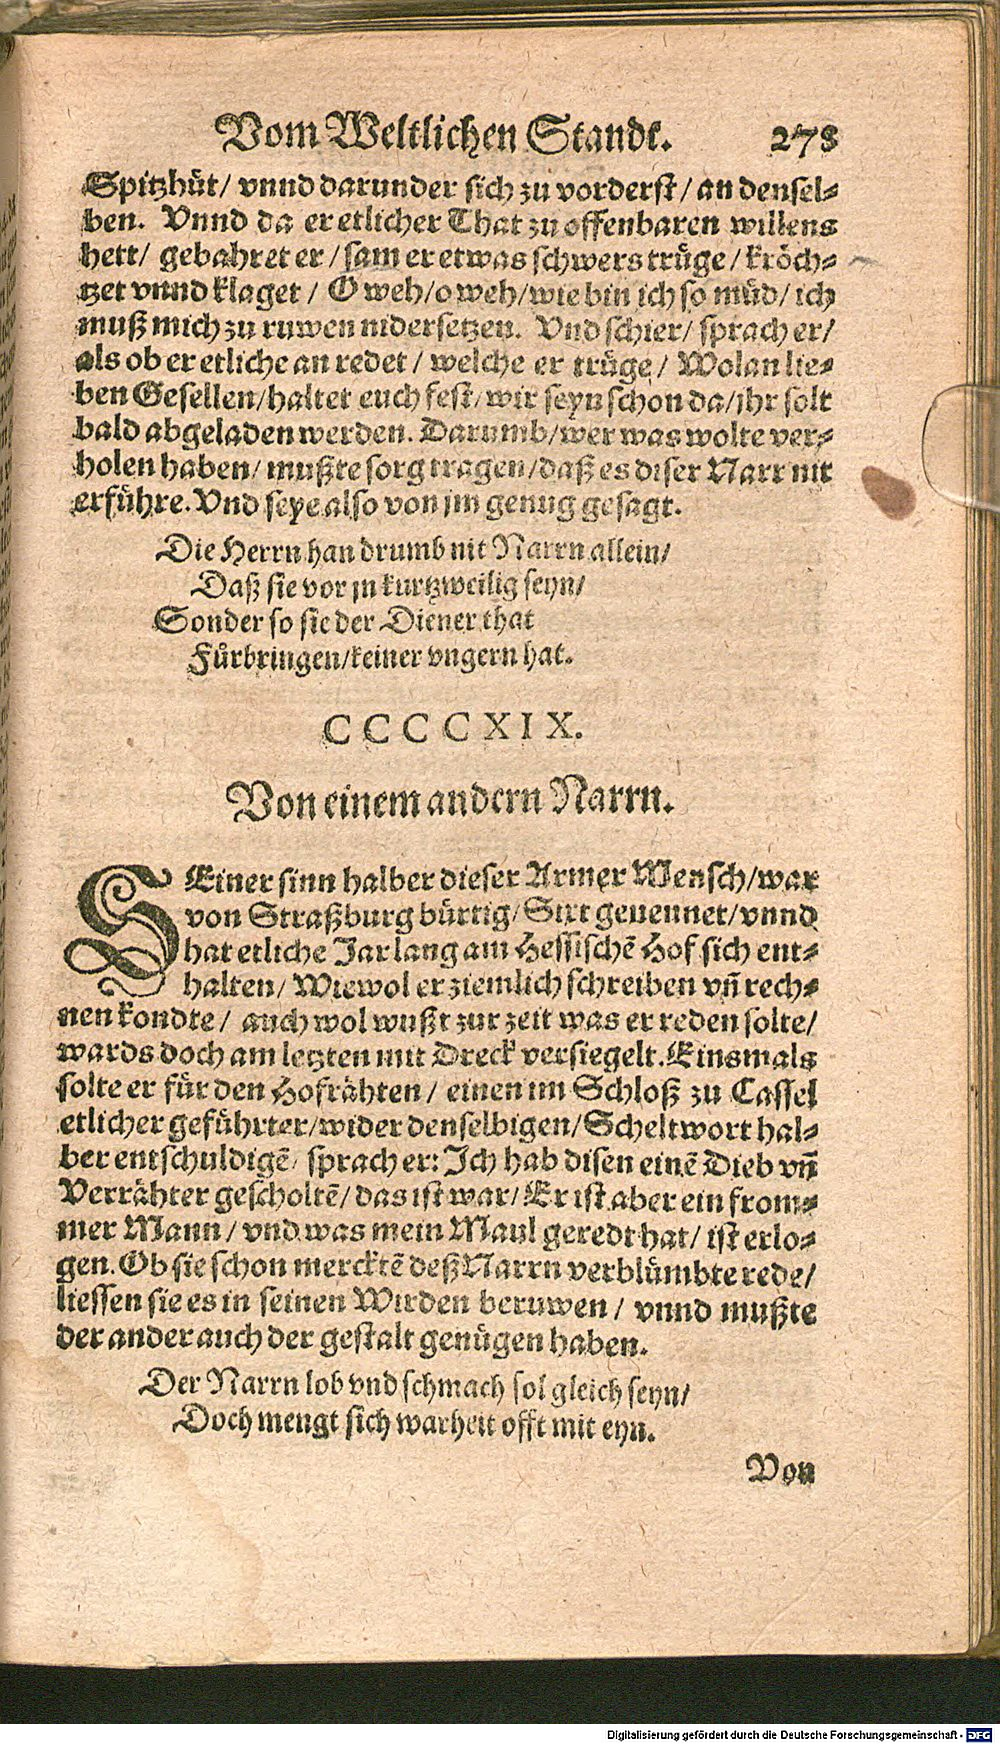 Vom Weltlichen Standt. 273
Spitzhüt/ vnnd darunder sich zu vorderst/ an densel-
ben. Vnnd da er etlicher That zu offenbaren willens
hett/ gebahret er / sam er etwas schwers trüge / kröch-
tzet vnnd klaget / O weh/o weh/wie bin ich so müd/ ich
muß mich zu ruwen nidersetzen. Vnd schier/ sprach er/
als ob er etliche an redet / welche er trüge / Wolan lie-
ben Gesellen/haltet euch fest/ wir seyn schon da/jhr solt
bald abgeladen werden. Darumb/wer was wolte ver-
holen haben/ mußte sorg tragen/daß es diser Narr nit
erführe. Vnd seye also von jm genug gesagt.
Die Herrn han drumb nit Narrn allein/
Daß sie vor jn kurtzweilig seyn/
Sonder so sie der Diener that
Fürbringen/keiner vngern hat.
CCCCXIX.
Von einem andern Narrn.
SEiner sinn halber dieser Armer Mensch/war
von Straßburg bürtig/Sixt genennet/vnnd
hat etliche Jar lang am Hessischē Hof sich ent-
halten/ Wiewol er ziemlich schreiben vñ rech-
nen kondte / auch wol wußt zur zeit was er reden solte/
wards doch am letzten mit Dreck versiegelt. Einsmals
solte er für den Hofrähten / einen im Schloß zu Cassel
etlicher geführter/wider denselbigen/Scheltwort hal-
ber entschuldigē/ sprach er: Ich hab disen einē Dieb vñ
Verrähter gescholtē/ das ist war/ Er ist aber ein from-
mer Mann / vnd was mein Maul geredt hat/ ist erlo-
gen. Ob sie schon mercktē deß Narrn verblümbte rede/
liessen sie es in seinen Wirden beruwen / vnnd mußte
der ander auch der gestalt genügen haben.
Der Narrn lob vnd schmach sol gleich seyn/
Doch mengt sich warheit offt mit eyn.
Von
Digitalisierung gefördert durch die Deutsche Forschungsgemeinschaft - DFG